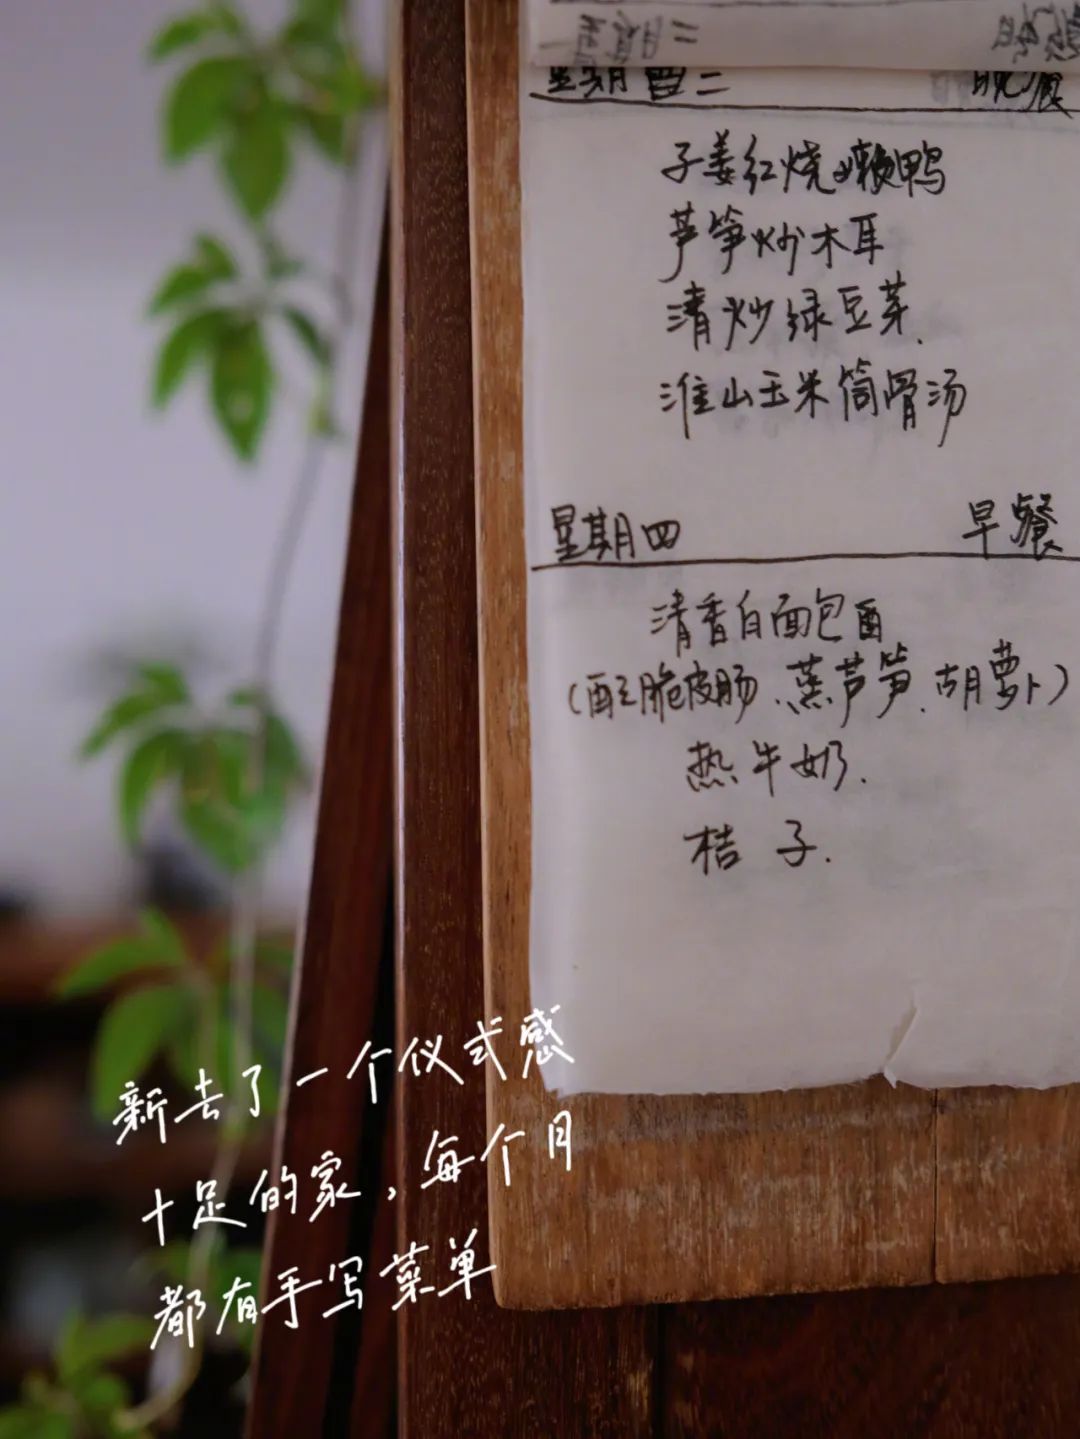 星期 晚餐
子姜红烧嫩鸭
芦笋炒木耳
清炒绿豆芽.
淮山玉米筒骨汤
星期四 早餐
清香白面包
(配脆皮肠、蒸芦笋、胡萝卜)
热牛奶.
桔子.
新去了一个仪式感
十足的家，每个月
都有手写菜单